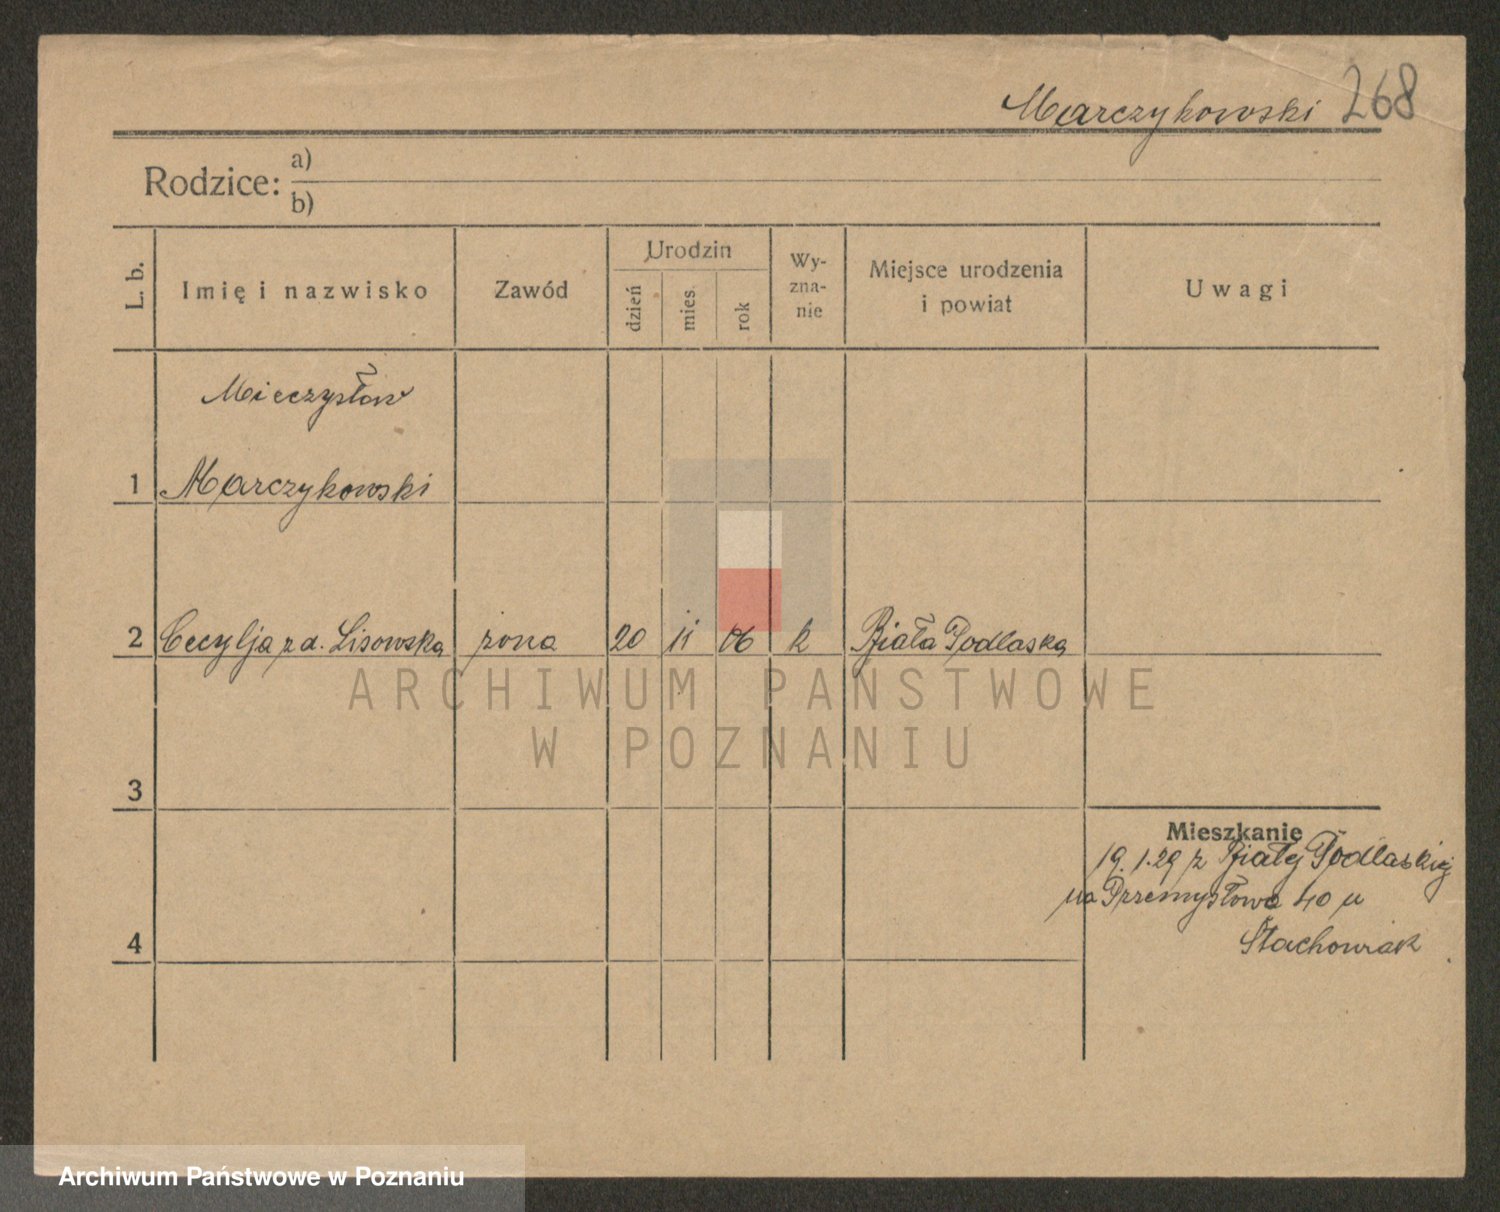 Marczykowski 268
Rodzice: a)
b)
L. b.
Imię i nazwisko
Zawód
Urodzin
dzień
mies.
rok
Wy-
zna-
nie
Miejsce urodzenia
i powiat
Uwagi
Mieczysław
1 Marczykowski
2 Cecylja z d. Lisowska żona 20 11 06 k Biała Podlaska
ARCHIWUM PAŃSTWOWE
W POZNANIU
3
Mieszkanie
19.1.29 z Biały Podlaskiej
na Przemysłowa 40 u
Stachowiak
4
Archiwum Państwowe w Poznaniu